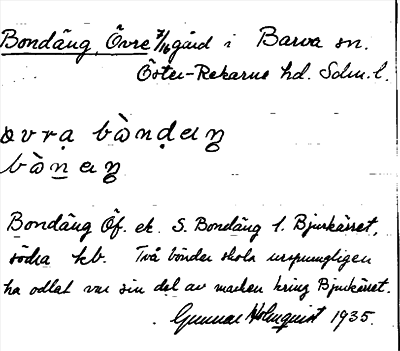 Bondäng, Övre 7/16 gård i Barva sn.
Öster-Rekarne hd. Sdm. l.
øvrạ bòndeŋ
bòneŋ
Bondäng Öf. ek. S. Bondäng l. Bjurkärret,
södra kb. Två bönder skola ursprungligen
ha odlat var sin del av marken kring Bjurkärret.
Gunnar Holmquist 1935.